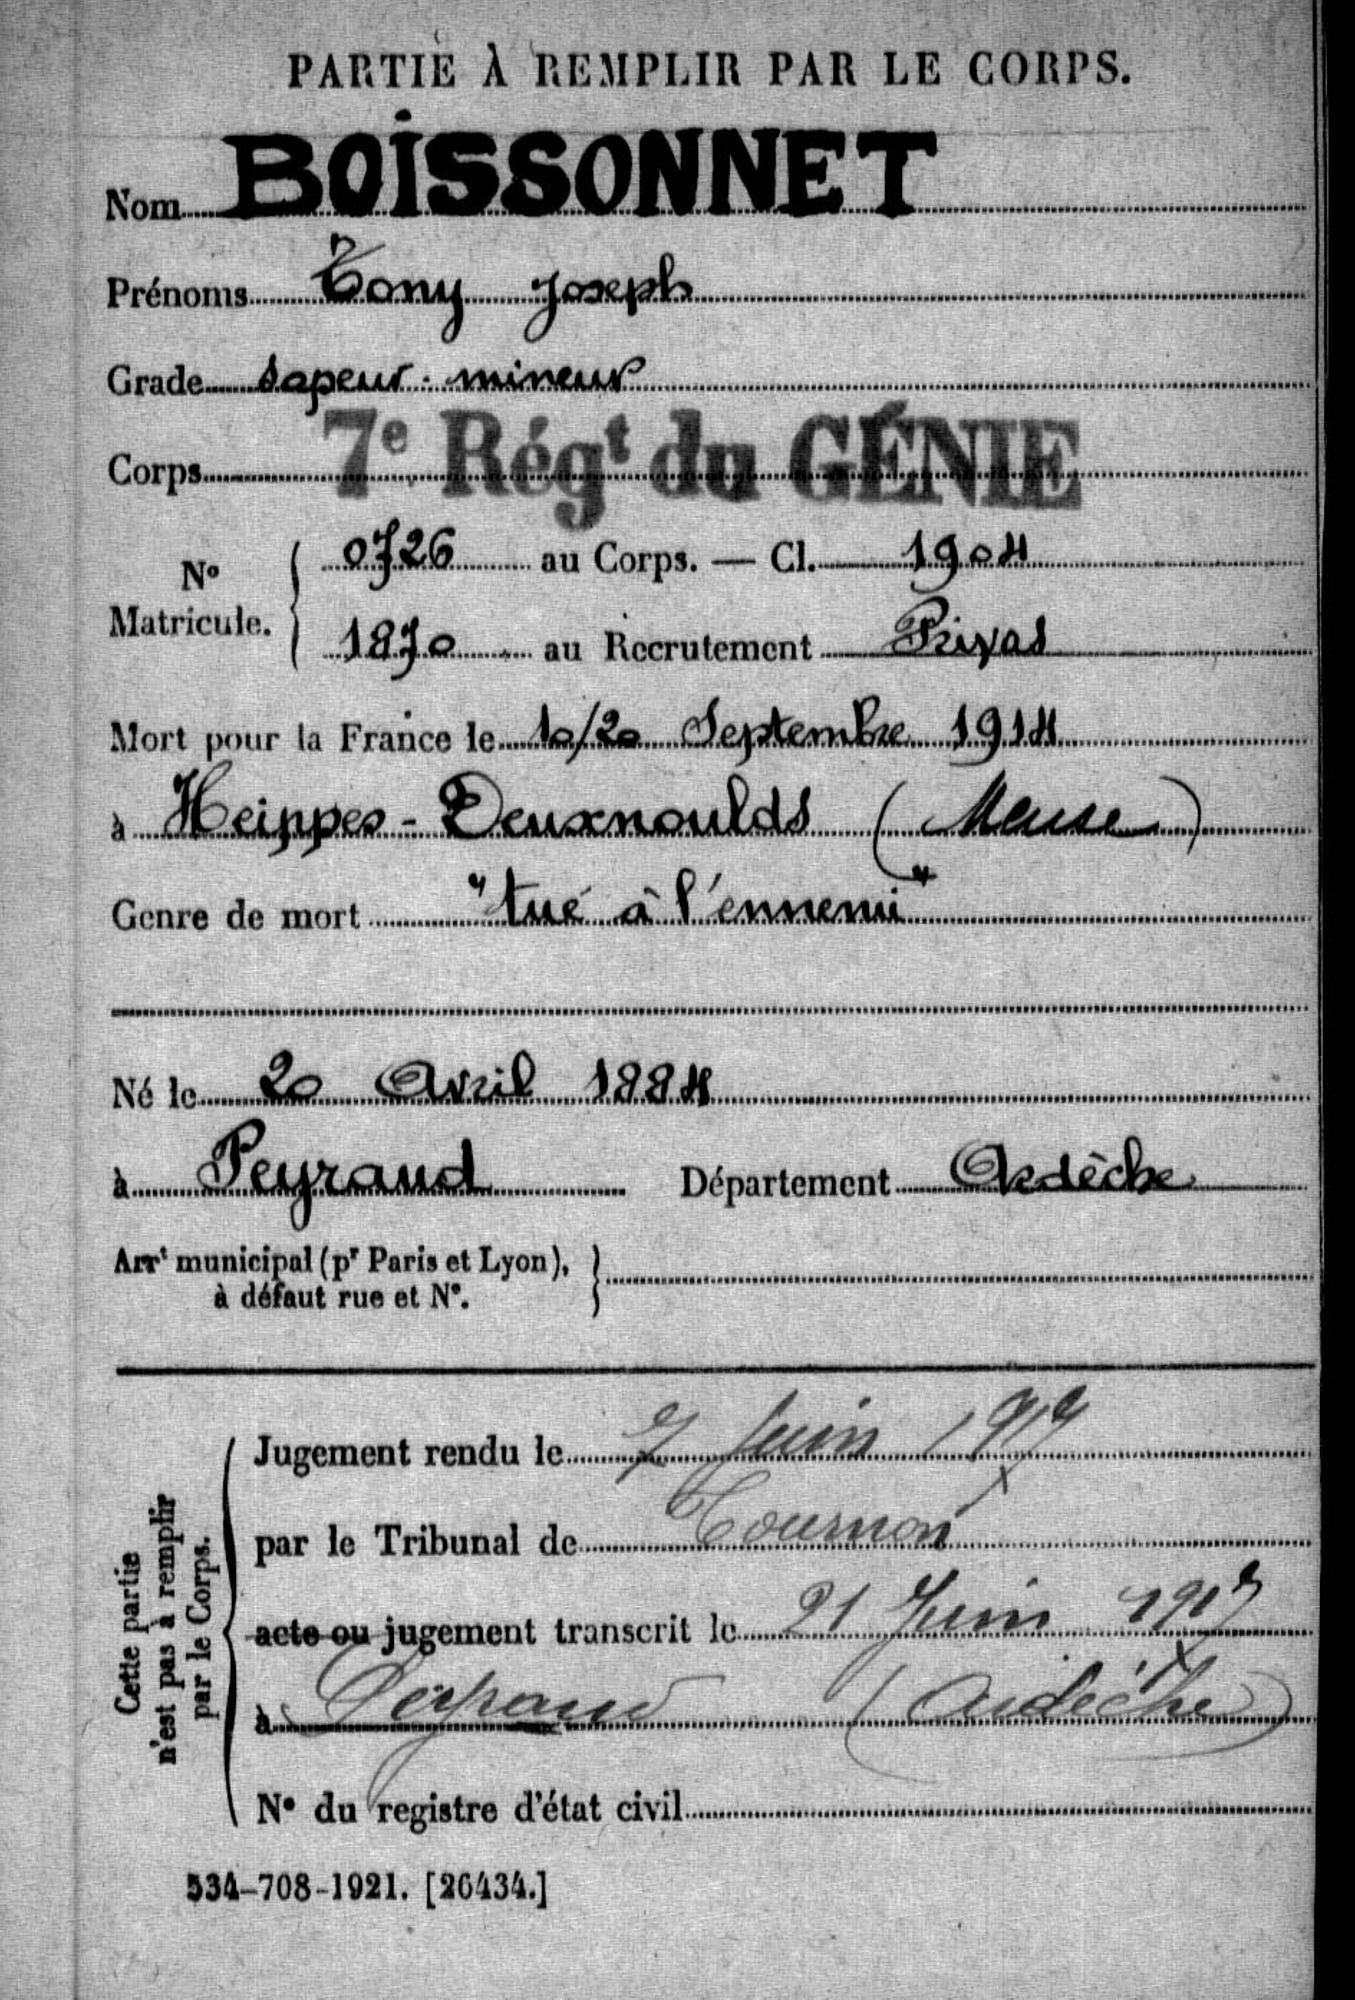 PARTIE À REMPLIR PAR LE CORPS.
Nom BOISSONNET
Prénoms Tony Joseph
Grade sapeur-mineur
Corps 7e Régt du GÉNIE
No Matricule. { 0726 au Corps. — Cl. 1904
1870 au Recrutement Privas
Mort pour la France le 10/20 Septembre 1914
à Heippes-Deuxnoulds (Meuse)
Genre de mort "tué à l'ennemi"
Né le 20 Avril 1884
à Peyraud Département Ardèche
Arrt municipal (pr Paris et Lyon), }
à défaut rue et No.
Cette partie
n'est pas à remplir
par le Corps.
Jugement rendu le 7 Juin 1917
par le Tribunal de Tournon
acte ou jugement transcrit le 21 Juin 1917
à Peyraud (Ardèche)
No du registre d'état civil
534-708-1921. [26434.]